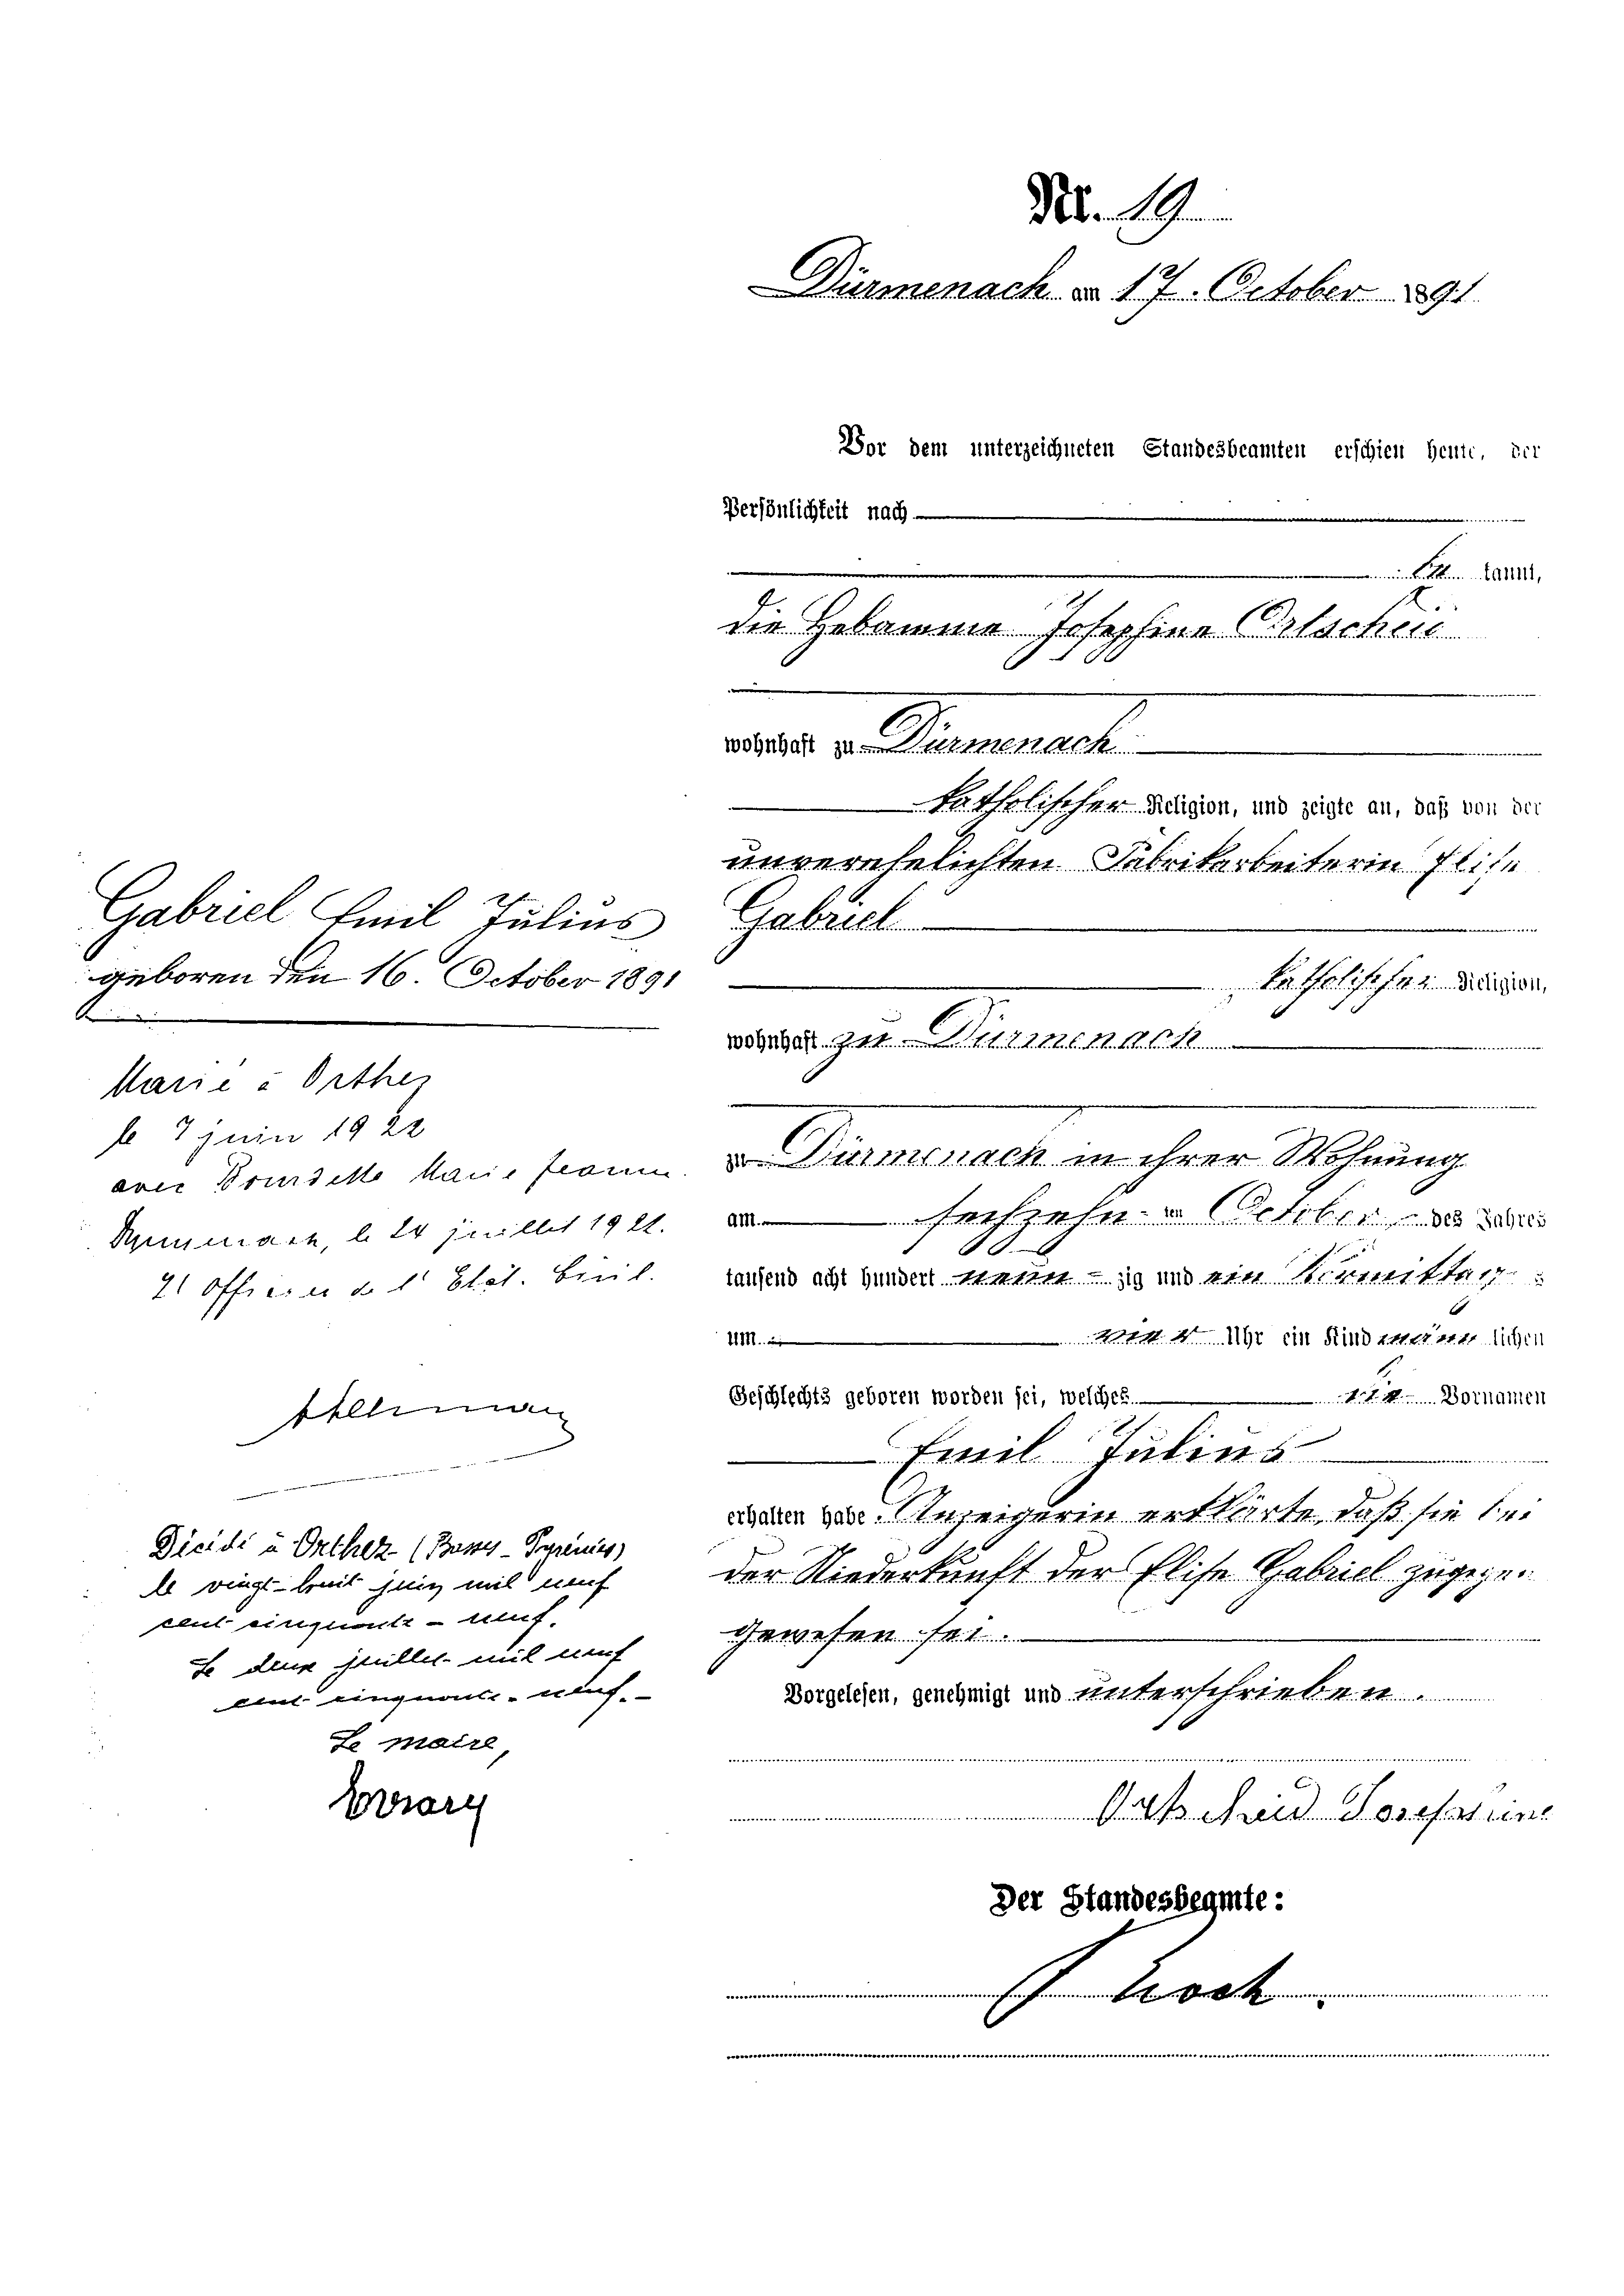 Nr. 19
Dürmenach am 17. October 1891
Vor dem unterzeichneten Standesbeamten erschien heute, der
Persönlichkeit nach
be kannt,
die Hebamme Josephine Ortscheid
wohnhaft zu Dürmenach
katholischer Religion, und zeigte an, daß von der
unverehelichten Fabrikarbeiterin Elise
Gabriel
katholischer Religion,
wohnhaft zu Dürmenach
zu Dürmenach in ihrer Wohnung
am sechzehn ten October des Jahres
tausend acht hundert neun zig und ein Vormittag s
um vier Uhr ein Kind männ lichen
Geschlechts geboren worden sei, welches die Vornamen
Emil Julius
erhalten habe. Anzeigerin erklärte, daß sie bei
der Niederkunft der Elise Gabriel zugegen
gewesen sei.
Vorgelesen, genehmigt und unterschrieben.
Ortscheid Josephine
Der Standesbeamte:
Koch
Gabriel Emil Julius
geboren den 16. October 1891
Marié à Orthez
le 7 juin 1922
avec Marie
le 24 juillet
l'Officier de l'Etat. Civil.
Décidé à Orthez (Basses-Pyrénées)
le vingt-huit juin mil neuf
cent cinquante-neuf.
Le deux juillet mil neuf
cent cinquante-neuf.
Le maire,